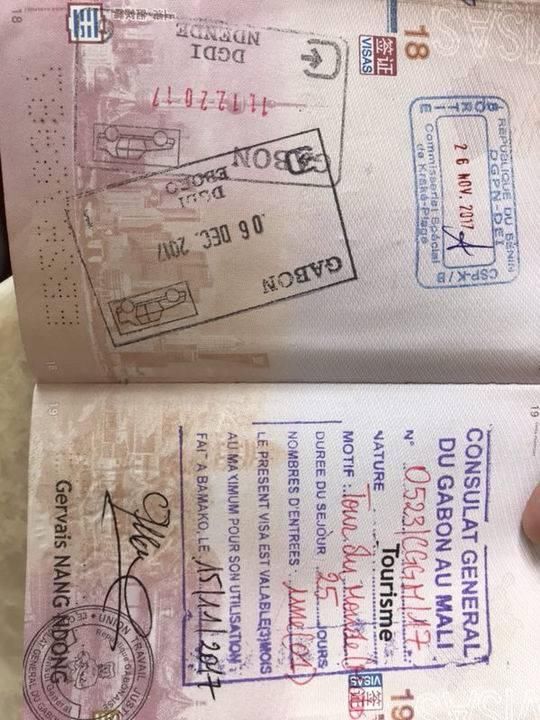 18
签证
VISAS
18
REPUBLIQUE DU BENIN
DGPN-DEI
26 NOV. 2017
Commissariat Spécial
de Kraké-Plage
CSP-K/B
SORTIE
DGDI
NDENDE
11.12.2017
GABON
GABON
06 DEC. 2017
DGDI
EBORO
18
19
19
签证
VISAS
19
CONSULAT GENERAL
DU GABON AU MALI
N° 0523/CGGM/17
NATURE Tourisme
MOTIF: Tour du Monde
DUREE DU SEJOUR 25 JOURS
NOMBRES D'ENTREES: une (01)
LE PRESENT VISA EST VALABLE(3)MOIS
AU MAXIMUM POUR SON UTILISATION
FAIT A BAMAKO, LE 15/11/2017
Gervais NANG NDONG
UNION TRAVAIL JUSTICE